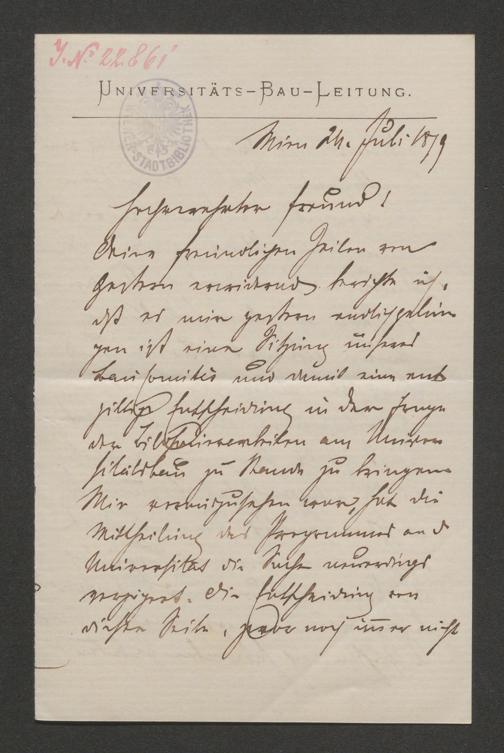 J. Nº 22.861
UNIVERSITÄTS-BAU-LEITUNG.
WIENER STADTBIBLIOTHEK
Wien 24. Juli 1879
Hochverehrter Freund!
Deine freundlichen Zeilen von
gestern erwidernd berichte ich,
daß es mir gestern endlich gelun
gen ist eine Sitzung unseres
Baucomités und damit eine end
giltige Entscheidung in der Frage
der Bildhauerarbeiten am Univer
sitätsbau zu Stande zu bringen.
Wie vorauszusehen war, hat die
Mittheilung des Programmes an d
Universität die Sache neuerdings
verzögert. Die Entscheidung von
dieser Seite, zwar noch immer nicht